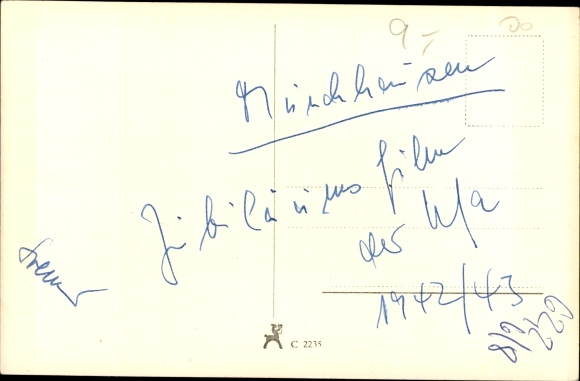 9,-
Do
Münchhausen
Jubiläumsfilm
der Ufa
1942/43
C 2235